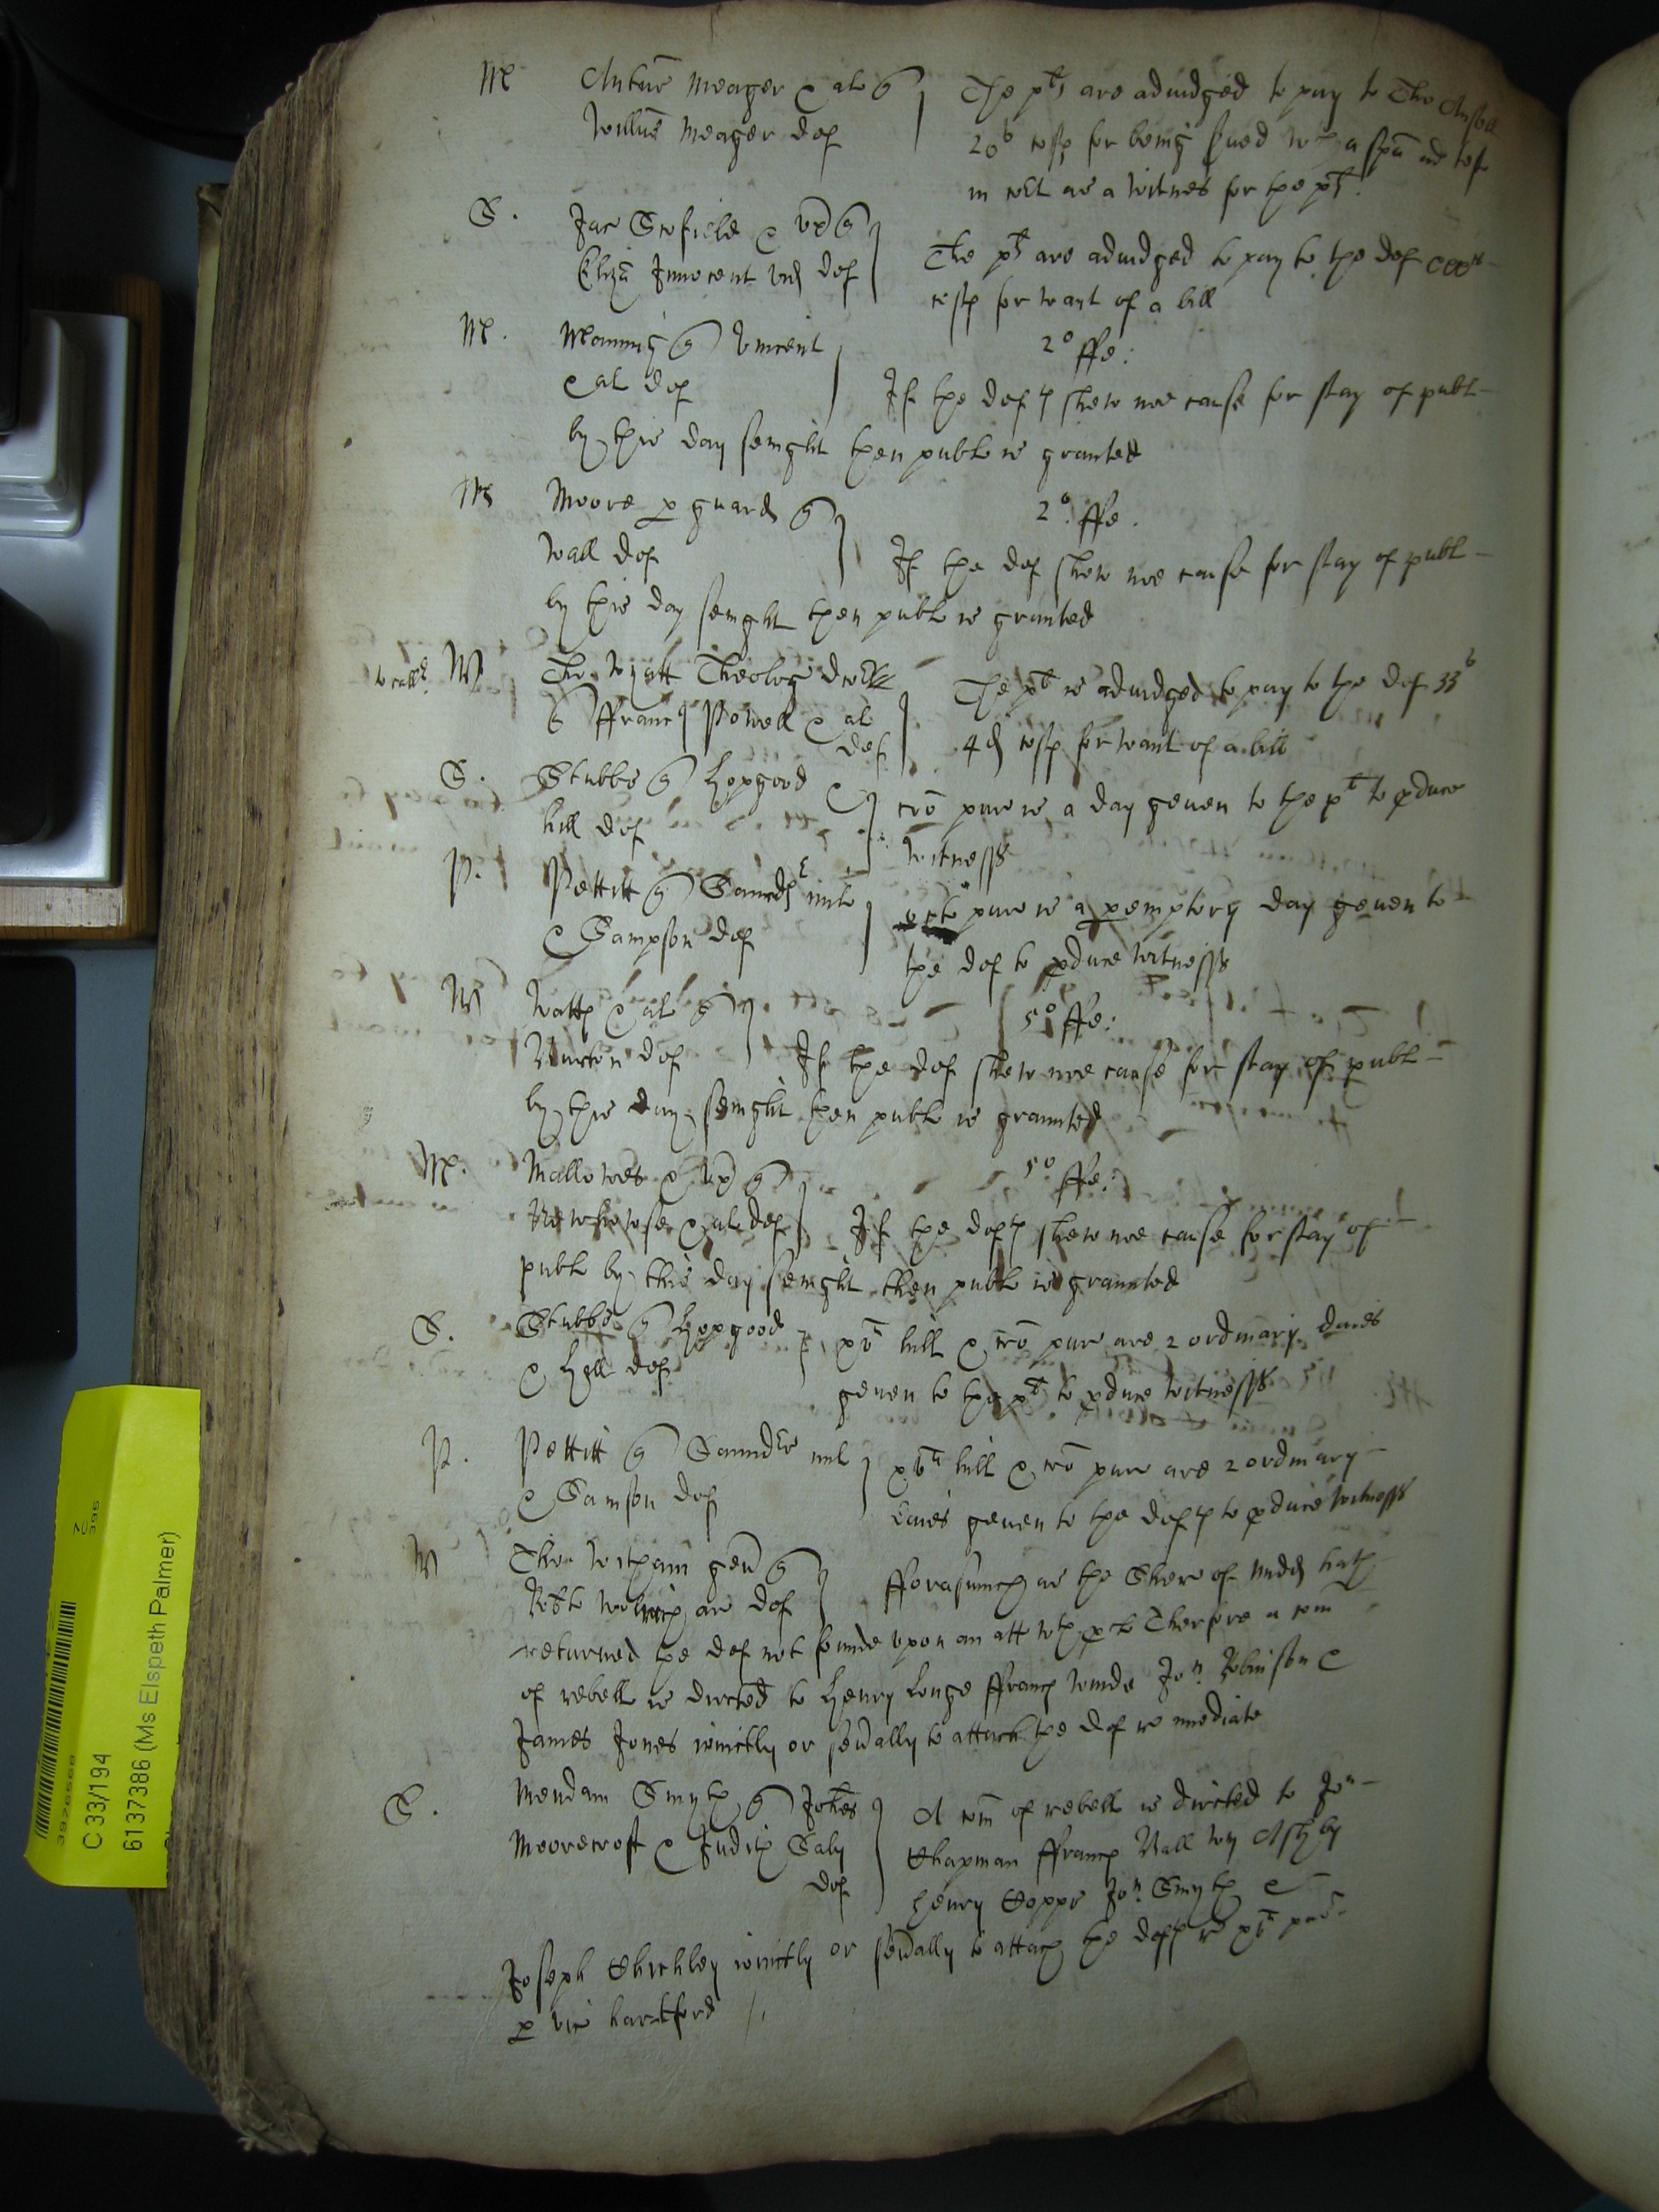 M Anthu Meager & al q The plts are adiudged to pay to Tho
Willm Meager def 20s costs for being sued wth a spa ad test
in Cort as a witnes for the plts
S. Jac Scofielde & ux q The plts are adiudged to pay to the def
Eliza Innocent vid def costs for want of a bill
M. Manning q Vincent 2o ffe:
& al def If the defts shew noe cause for stay of publ
by this day senight then publ is granted
M Moore p guard q 2o ffe.
Wall def If the def shew noe cause for stay of publ
by this day senight then publ is granted
W Tho Wyatt Theolog The plt is adiudged to pay to the def 33s
q ffranc Powell & al def 4d costs for want of a bill
S. Stubbs q Hopgood & cro pur is a day geven to the plt to pduce
hill def witnesses
P. Pettitt q Saunders milt pur is a pemptory day geven to
& Sampson def the def to pduce witnesses
W Watts & al q 5o ffe:
Burton def If the def shew noe cause for stay of publ
by this day senight then publ is graunted
M. Mallowes & ux q 5o ffe:
Newhowse & al def If the defts shew noe cause for stay of
publ by this day senight then publ is graunted
S. Stubbs q Hopgood hill & cro pur are 2 ordinary daies
& Hyll def geven to the plt to pduce witnesses
P. Pettitt q Saunders mil hill & cro pur are 2 ordinary
& Samson def daies geven to the defts to pduce witnesses
W Tho Witham gen q fforasmuch as the Shere of Midd hath
Robt def
returned the def not founde vpon an att wth Therfore a com
of rebell is directed to Henry Longe ffranc Winde Jon Robinson &
James Jones iointly or seually to attach the def re imediate
S. Mendam Smyth q Johes A com of rebell is directed to Jon
Moorecroft & Judith Saly Chapman ffranc Wall Wm Ashby
def Henry Coppe Jon Smyth &
Joseph Chichley iointly or seually to attach the defts re
p vic hartford
C 33/194
6137386 (Ms Elspeth Palmer)